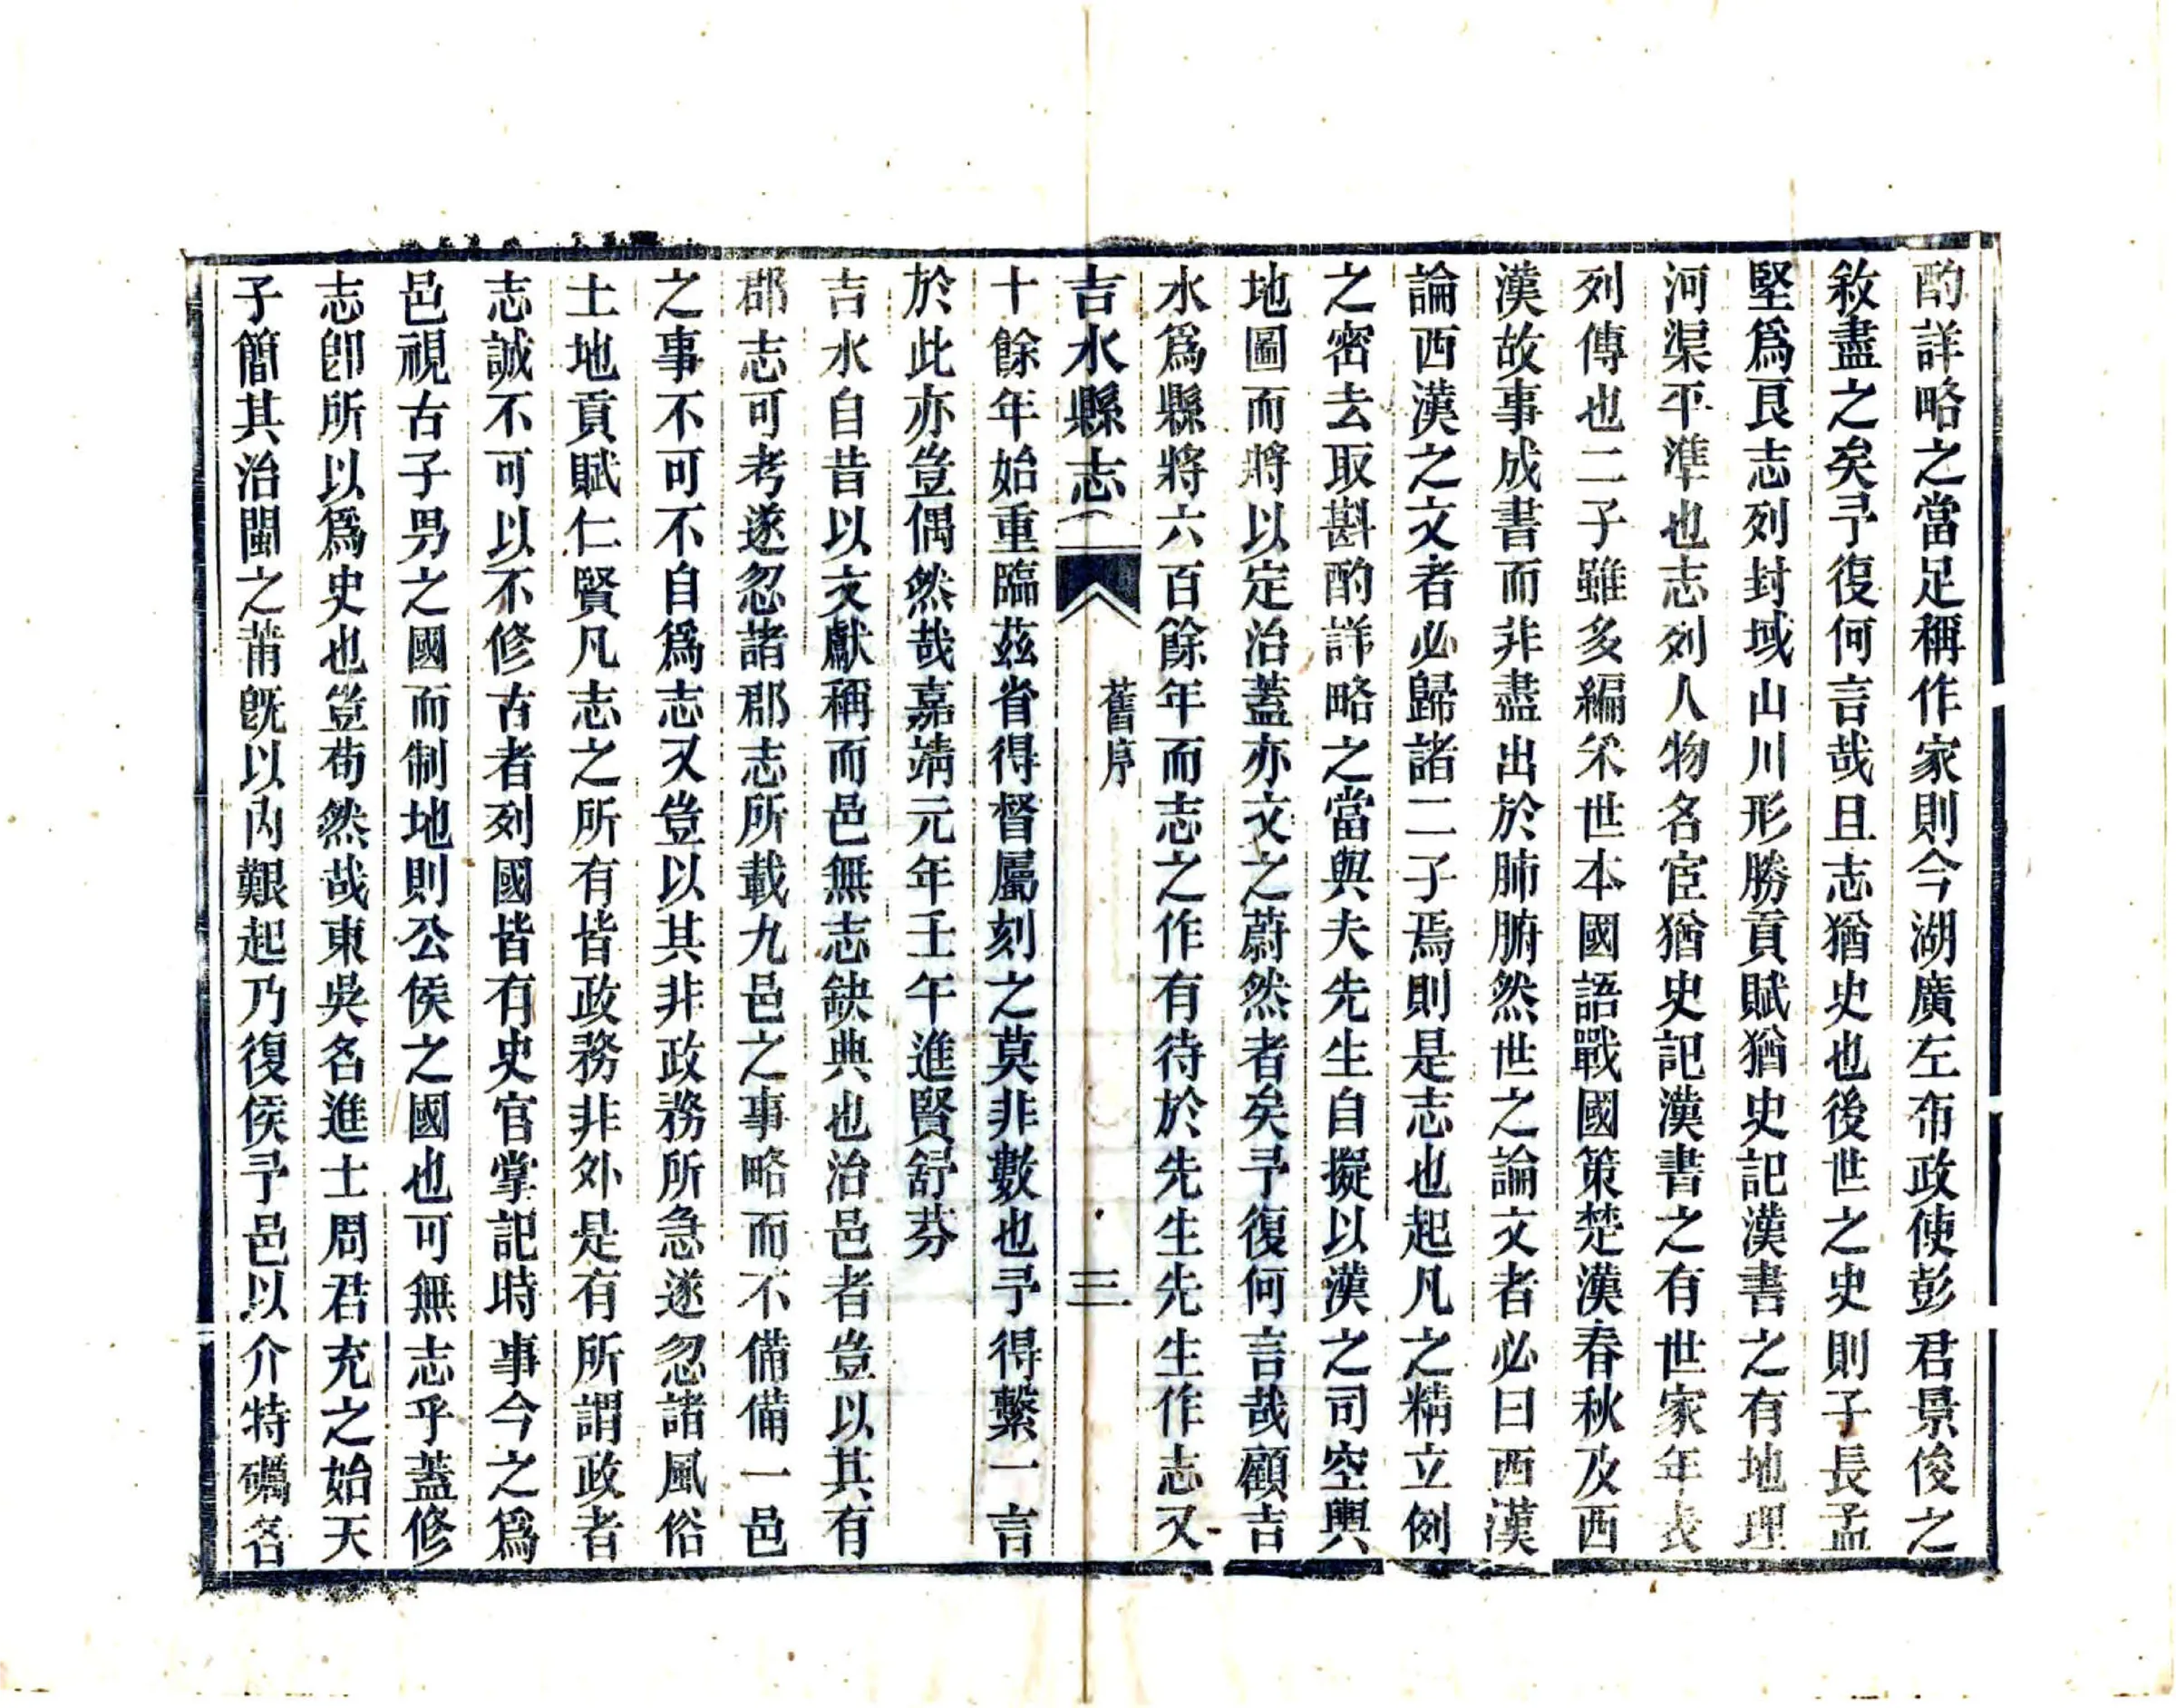 酌詳略之當足稱作家則今湖廣左布政使彭君景俊之
敘盡之矣予復何言哉且志猶史也後世之史則子長孟
堅爲良志列封域山川形勝貢賦猶史記漢書之有地理
河渠平準也志列人物名宦猶史記漢書之有世家年表
列傳也二子雖多編采世本國語戰國策楚漢春秋及西
漢故事成書而非盡出於肺腑然世之論文者必曰西漢
論西漢之文者必歸諸二子焉則是志也起凡之精立例
之密去取斟酌詳略之當與夫先生自擬以漢之司空輿
地圖而將以定治蓋亦文之蔚然者矣予復何言哉顧吉
水爲縣將六百餘年而志之作有待於先生先生作志又
吉水縣志
舊序
三
十餘年始重臨茲省得督屬刻之莫非數也予得繫一言
於此亦豈偶然哉嘉靖元年壬午進賢舒芬
吉水自昔以文獻稱而邑無志缺典也治邑者豈以其有
郡志可考遂忽諸郡志所載九邑之事略而不備備一邑
之事不可不自爲志又豈以其非政務所急遂忽諸風俗
土地貢賦仁賢凡志之所有皆政務非外是有所謂政者
志誠不可以不修古者列國皆有史官掌記時事今之爲
邑視古子男之國而制地則公侯之國也可無志乎蓋修
志卽所以爲史也豈苟然哉東吳名進士周君充之始天
子簡其治閩之莆旣以內艱起乃復侯予邑以介特礪名